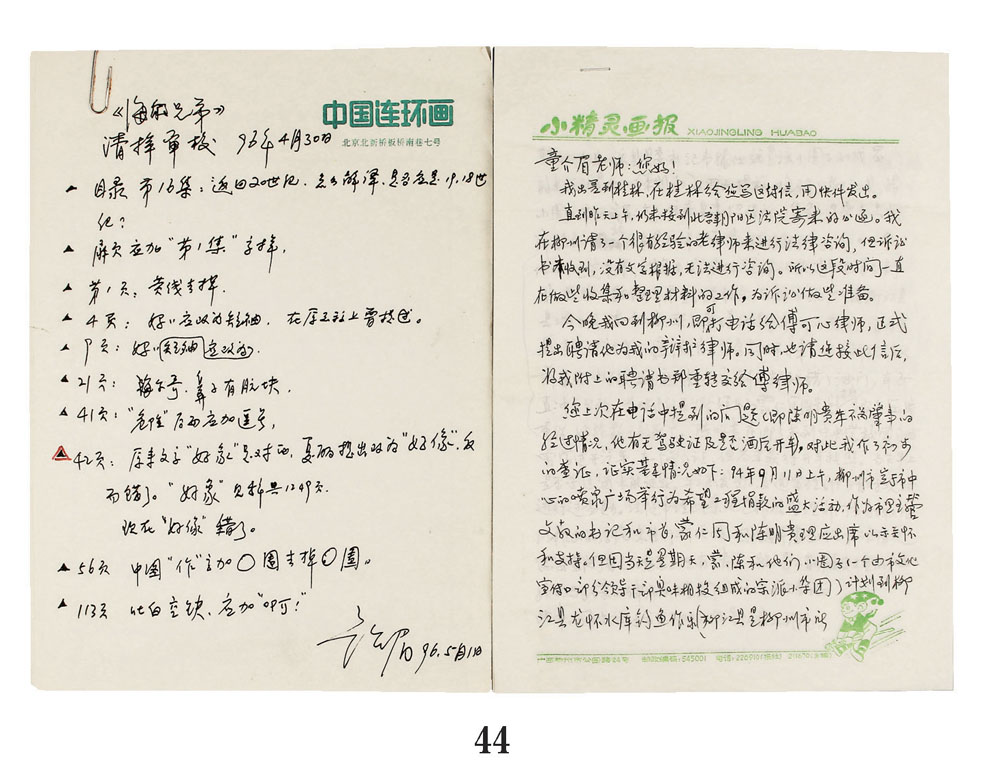 《海的兄弟》
清样审校 96年4月30日
中国连环画
北京北新桥板桥南巷七号
目录 第13集:返回20世纪.怎么解译,是否应是19.18世
纪?
扉页应加“第1集”字样,
第1页:黄线去掉.
4页:
9页:
21页:鼻子有脏块.
41页:后面应加逗号,
42页:原来文字“好象”是对的,提出改为“好像”,反
而错了。“好象”见 1249页.
现在“好像”错了。
56页 中国“作”字加〇圈去掉〇圈。
113页 此白空缺.应加“叮叮!”
96.5月1日
小精灵画报 XIAOJINGLING HUABAO
童介眉老师:您好!
我出差到桂林,在桂林给您写这封信,用快件发出。
直到昨天上午,仍未接到北京朝阳区法院寄来的公函。我
在柳州请了一个很有经验的老律师来进行法律咨询,但诉讼
书未收到,没有文字根据,无法进行咨询。所以这段时间一直
在做些收集和整理材料的工作,为诉讼做些准备。
今晚我回到柳州,即可打电话给傅可心律师,正式
提出聘请他为我的辩护律师。同时,也请您接此信后,
将我附上的聘请书郑重转交给傅律师。
您上次在电话中提到的问题(即陈明贵车祸肇事的
经过情况,他有无驾驶证及是否酒后开车。对此我作了初步
的查证,证实基本情况如下:94年9月11日上午,柳州市
心的喷泉广场举行为希望工程捐款的盛大活动,作为市里主管
文教的书记和市长,蒙仁周和陈明贵理应出席以示关怀
和支持。但因当天是星期天,蒙、陈和他们小圈子(一个由市文化
宣传口部分领导干部臭味相投组成的宗派小集团)计划到柳
江县龙怀水库钓鱼作乐(柳江县是柳州市所
邮政编码:545001